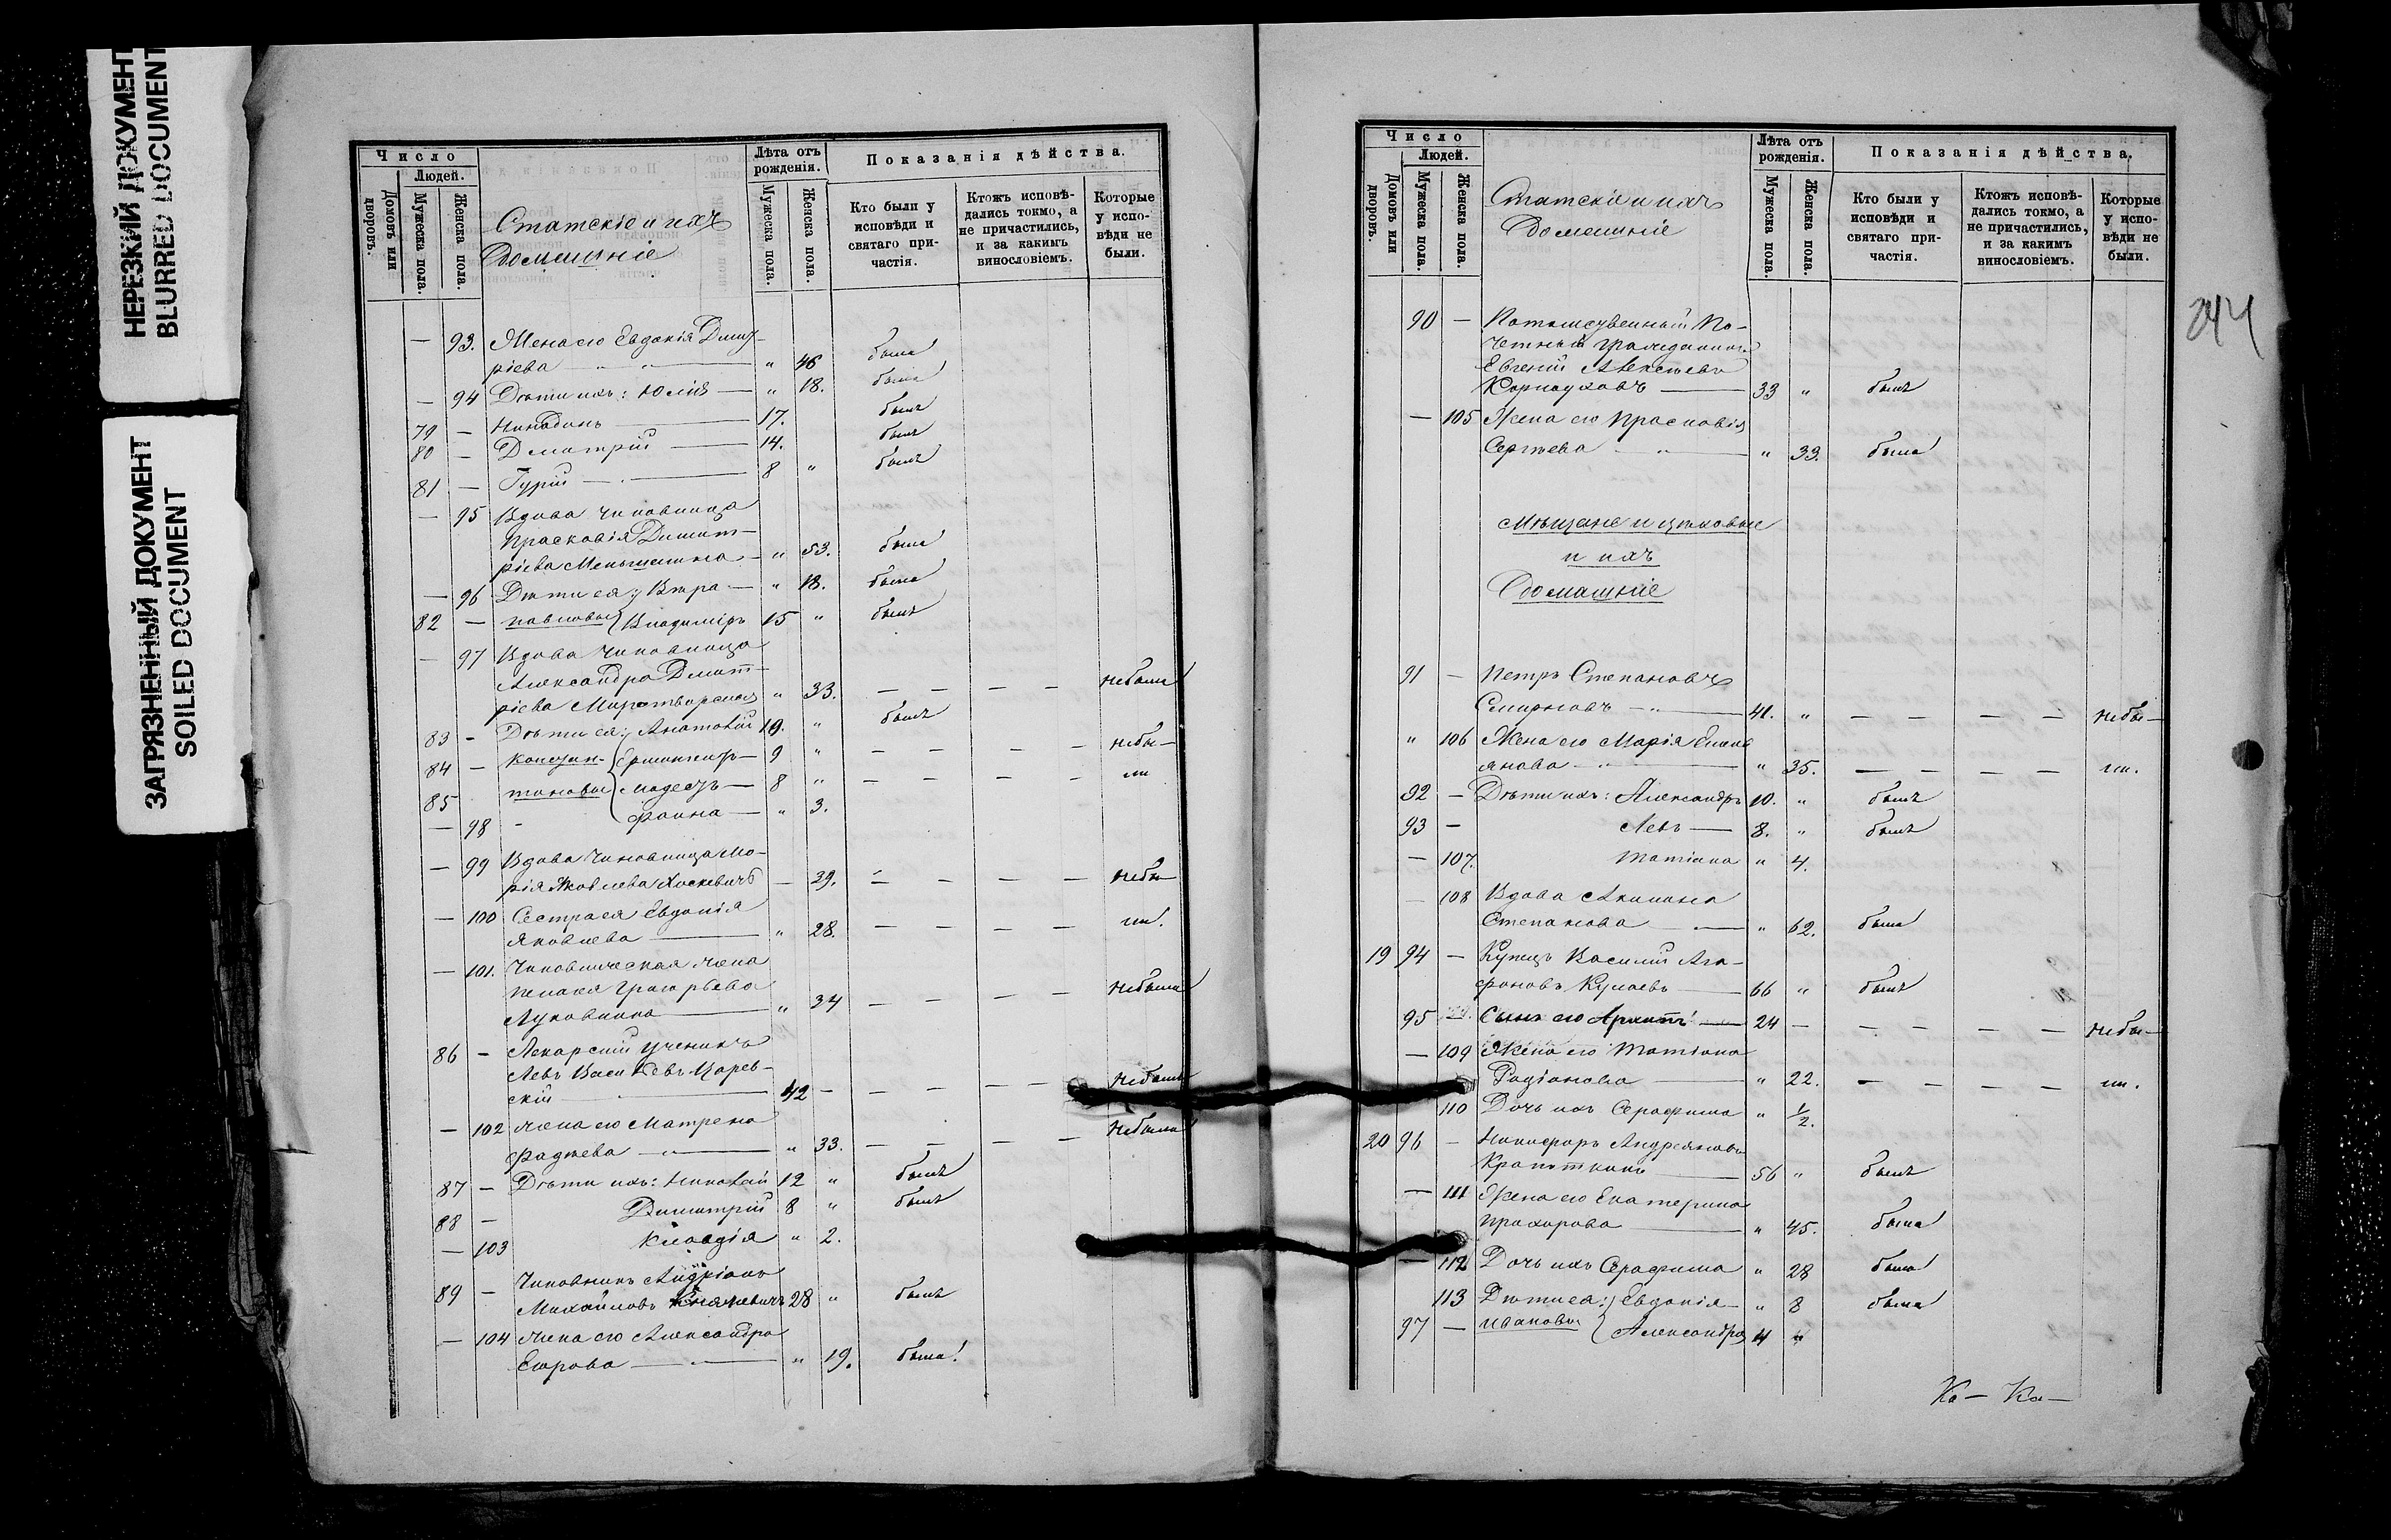 НЕРЕЗКИЙ ДОКУМЕНТ
BLURRED DOCUMENT
ЗАГРЯЗНЕННЫЙ ДОКУМЕНТ
SOILED DOCUMENT
Число
Людей.
Домовъ или дворовъ.
Мужеска пола.
Женска пола.
Статскіе и ихъ
Домашніе
Лѣта отъ рожденія.
Мужеска пола.
Женска пола.
Показанія дѣйства.
Кто были у исповѣди и святаго причастія.
Ктожъ исповѣдались токмо, а не причастились, и за какимъ винословіемъ.
Которые у исповѣди не были.
— 93. Жена его Евдокія Дмит-
ріева — " 46 была
— 94 Дѣти ихъ: Юлія — " 18. была
79 — 17. былъ
80 — Дмитрій — 14. былъ
81 — Гурій — 8 " былъ
— 95 Вдова Чиновница
Прасковія Димит-
ріева Меньшикова — " 53. была
— 96 Дѣти ея: Вѣра — " 18. была
82 — Павловы Владиміръ 15 " былъ
— 97 Вдова Чиновница
Александра Димит-
ріева Миротворская " 33. — — — — небыла
83 — Дѣти ея: Анатолій 10. " былъ
84 — Констан- 9 " — — — — небы—
85 тиновы Модестъ — 8 " — — — — ни
— 98 - Фаина — " 3.
— 99 Вдова Чиновница Ма-
рія Яковлева — 39. — — — — небы—
— 100 Сестра ея Евдокія
Яковлева — " 28. — — — — ни.
— 101. Чиновническая жена
Пелагея Григорьева
Луковкина — " 34 — — — — небыла
86 — Лекарскій ученикъ
Левъ Васильевъ Царев-
скій — 42 — — — — — небылъ
— 102 жена его Матрена
Фадѣева — " 33. — — — — небыла
87 — Дѣти ихъ: Николай 12 " былъ
88 — Димитрій 8 " былъ
— 103 Клавдія " 2.
89 — Чиновникъ Андріанъ
Михайловъ Княжевичъ 28 " былъ
— 104 жена его Александра
Егорова — " 19. была!
Число
Людей.
Домовъ или дворовъ.
Мужеска пола.
Женска пола.
Статскіе и ихъ
Домашніе
Лѣта отъ рожденія.
Мужеска пола.
Женска пола.
Показанія дѣйства.
Кто были у исповѣди и святаго причастія.
Ктожъ исповѣдались токмо, а не причастились, и за какимъ винословіемъ.
Которые у исповѣди не были.
244
90 — Потомственный По-
четный Гражданинъ
Евгеній Алексѣевъ
Карнауховъ — 33 " былъ
— 105 Жена его Прасковія
Сергѣева — " 33. была
Мѣщане и цѣховые
и ихъ
Домашніе
91 — Петръ Степановъ
Смирновъ — 41. " — — — — небы—
" 106 Жена его Марія Емель
янова — " 35. — — — — ни.
92 — Дѣти ихъ: Александръ 10. " былъ
93 — Левъ — 8. " былъ
— 107. Татіана " 4.
— 108 Вдова Акилина
Степанова — " 62. была
19 94 — Купецъ Василій Ага-
фоновъ Кулаевъ — 66 " былъ
95 — Сынъ его — 24 — — — — — небы—
— 109 Жена его Татіана
Родіонова — " 22. — — — — ни.
110 Дочь ихъ Серафима " 1/2.
20 96 — Никифоръ Андреяновъ
Крапоткинъ — 56 " былъ
— 111 Жена его Екатерина
Прохорова — " 45. была
— 112 Дочь ихъ Серафима " 28 была
113 Дѣти ея: Евдокія — " 8 была
97 — Ивановы Александръ 4 "
Ка— Ка—